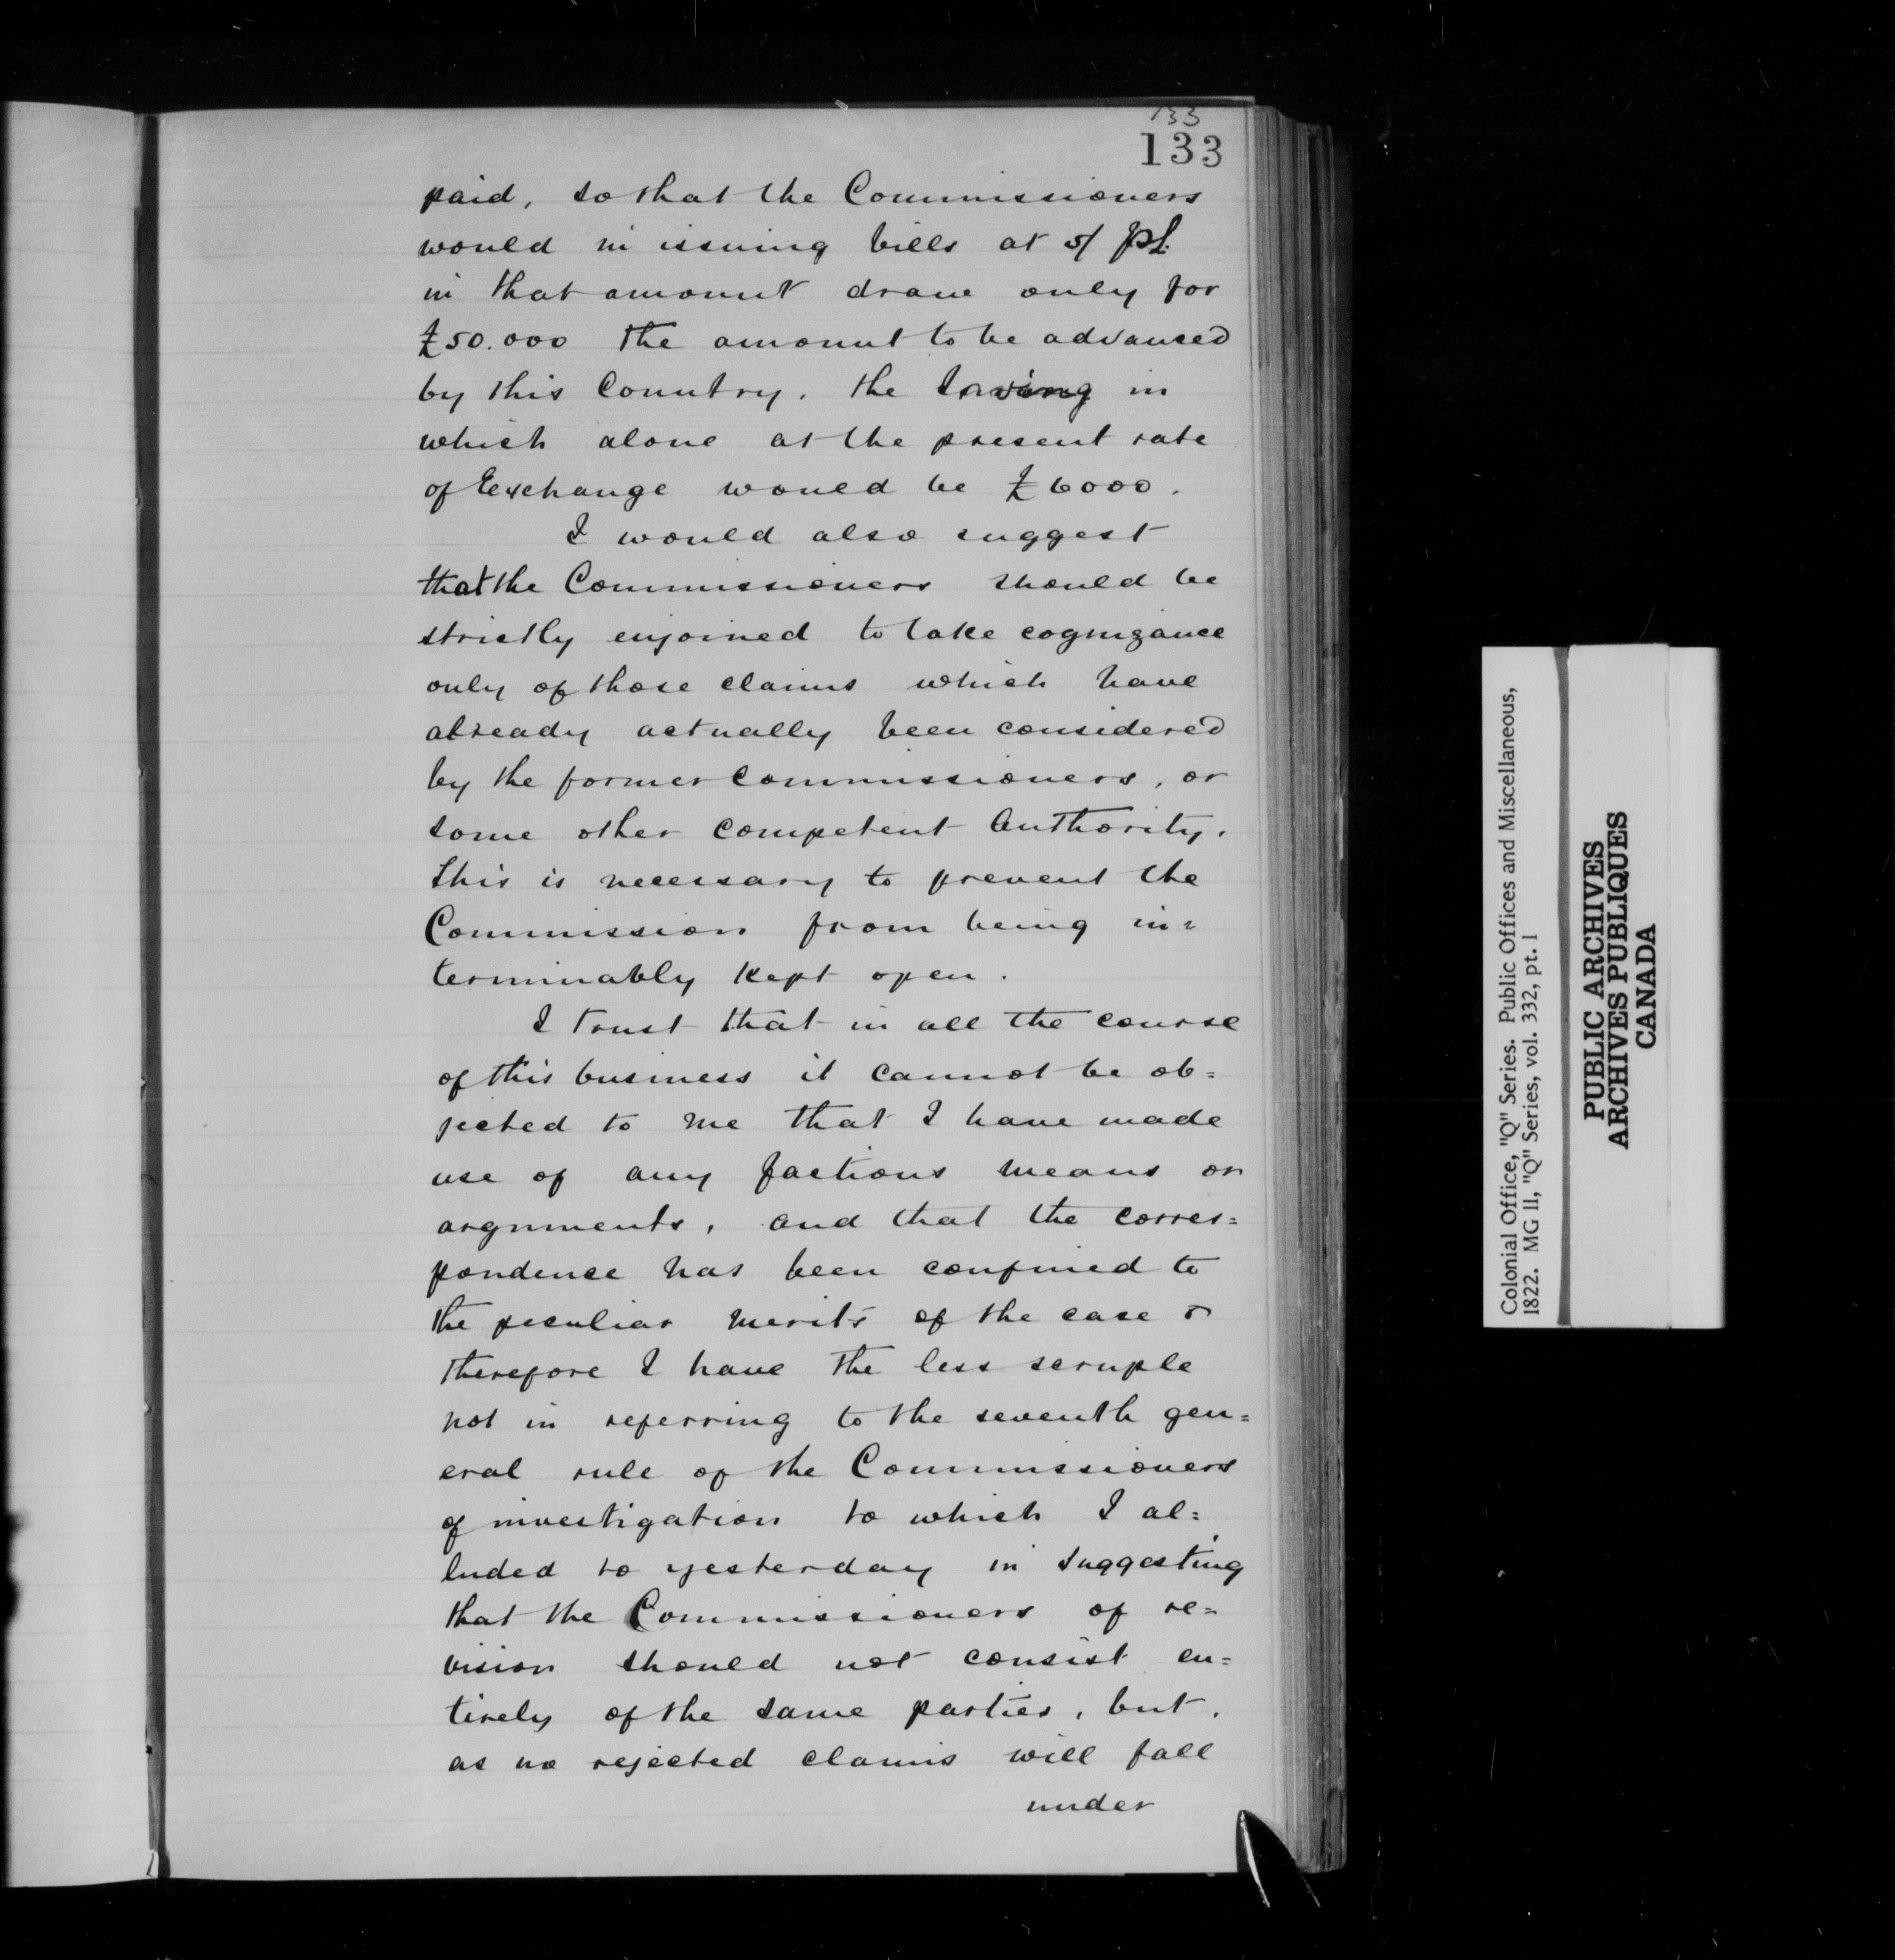 133
133
paid, so that the Commissioners
would in issuing bills at 5/
in that amount draw only for
£50.000 the amount to be advanced
by this Country. the saving in
which alone at the present rate
of Exchange would be £6000.
I would also suggest
that the Commissioners should be
strictly enjoined to take cognizance
only of those claims which have
already actually been considered
by the former Commissioners, or
some other competent Authority.
This is necessary to prevent the
Commission from being in=
terminably kept open.
I trust that in all the course
of this business it cannot be ob=
jected to me that I have made
use of any factious means or
arguments, and that the corres=
pondence has been confined to
the peculiar merits of the case &
therefore I have the less scruple
not in referring to the seventh gen=
eral rule of the Commissioners
of investigation to which I al=
luded to yesterday in suggesting
that the Commissioners of re=
vision should not consist en=
tirely of the same parties, but,
as no rejected claims will fall
under
Colonial Office, "Q" Series. Public Offices and Miscellaneous,
1822. MG 11, "Q" Series, vol. 332, pt. 1
PUBLIC ARCHIVES
ARCHIVES PUBLIQUES
CANADA